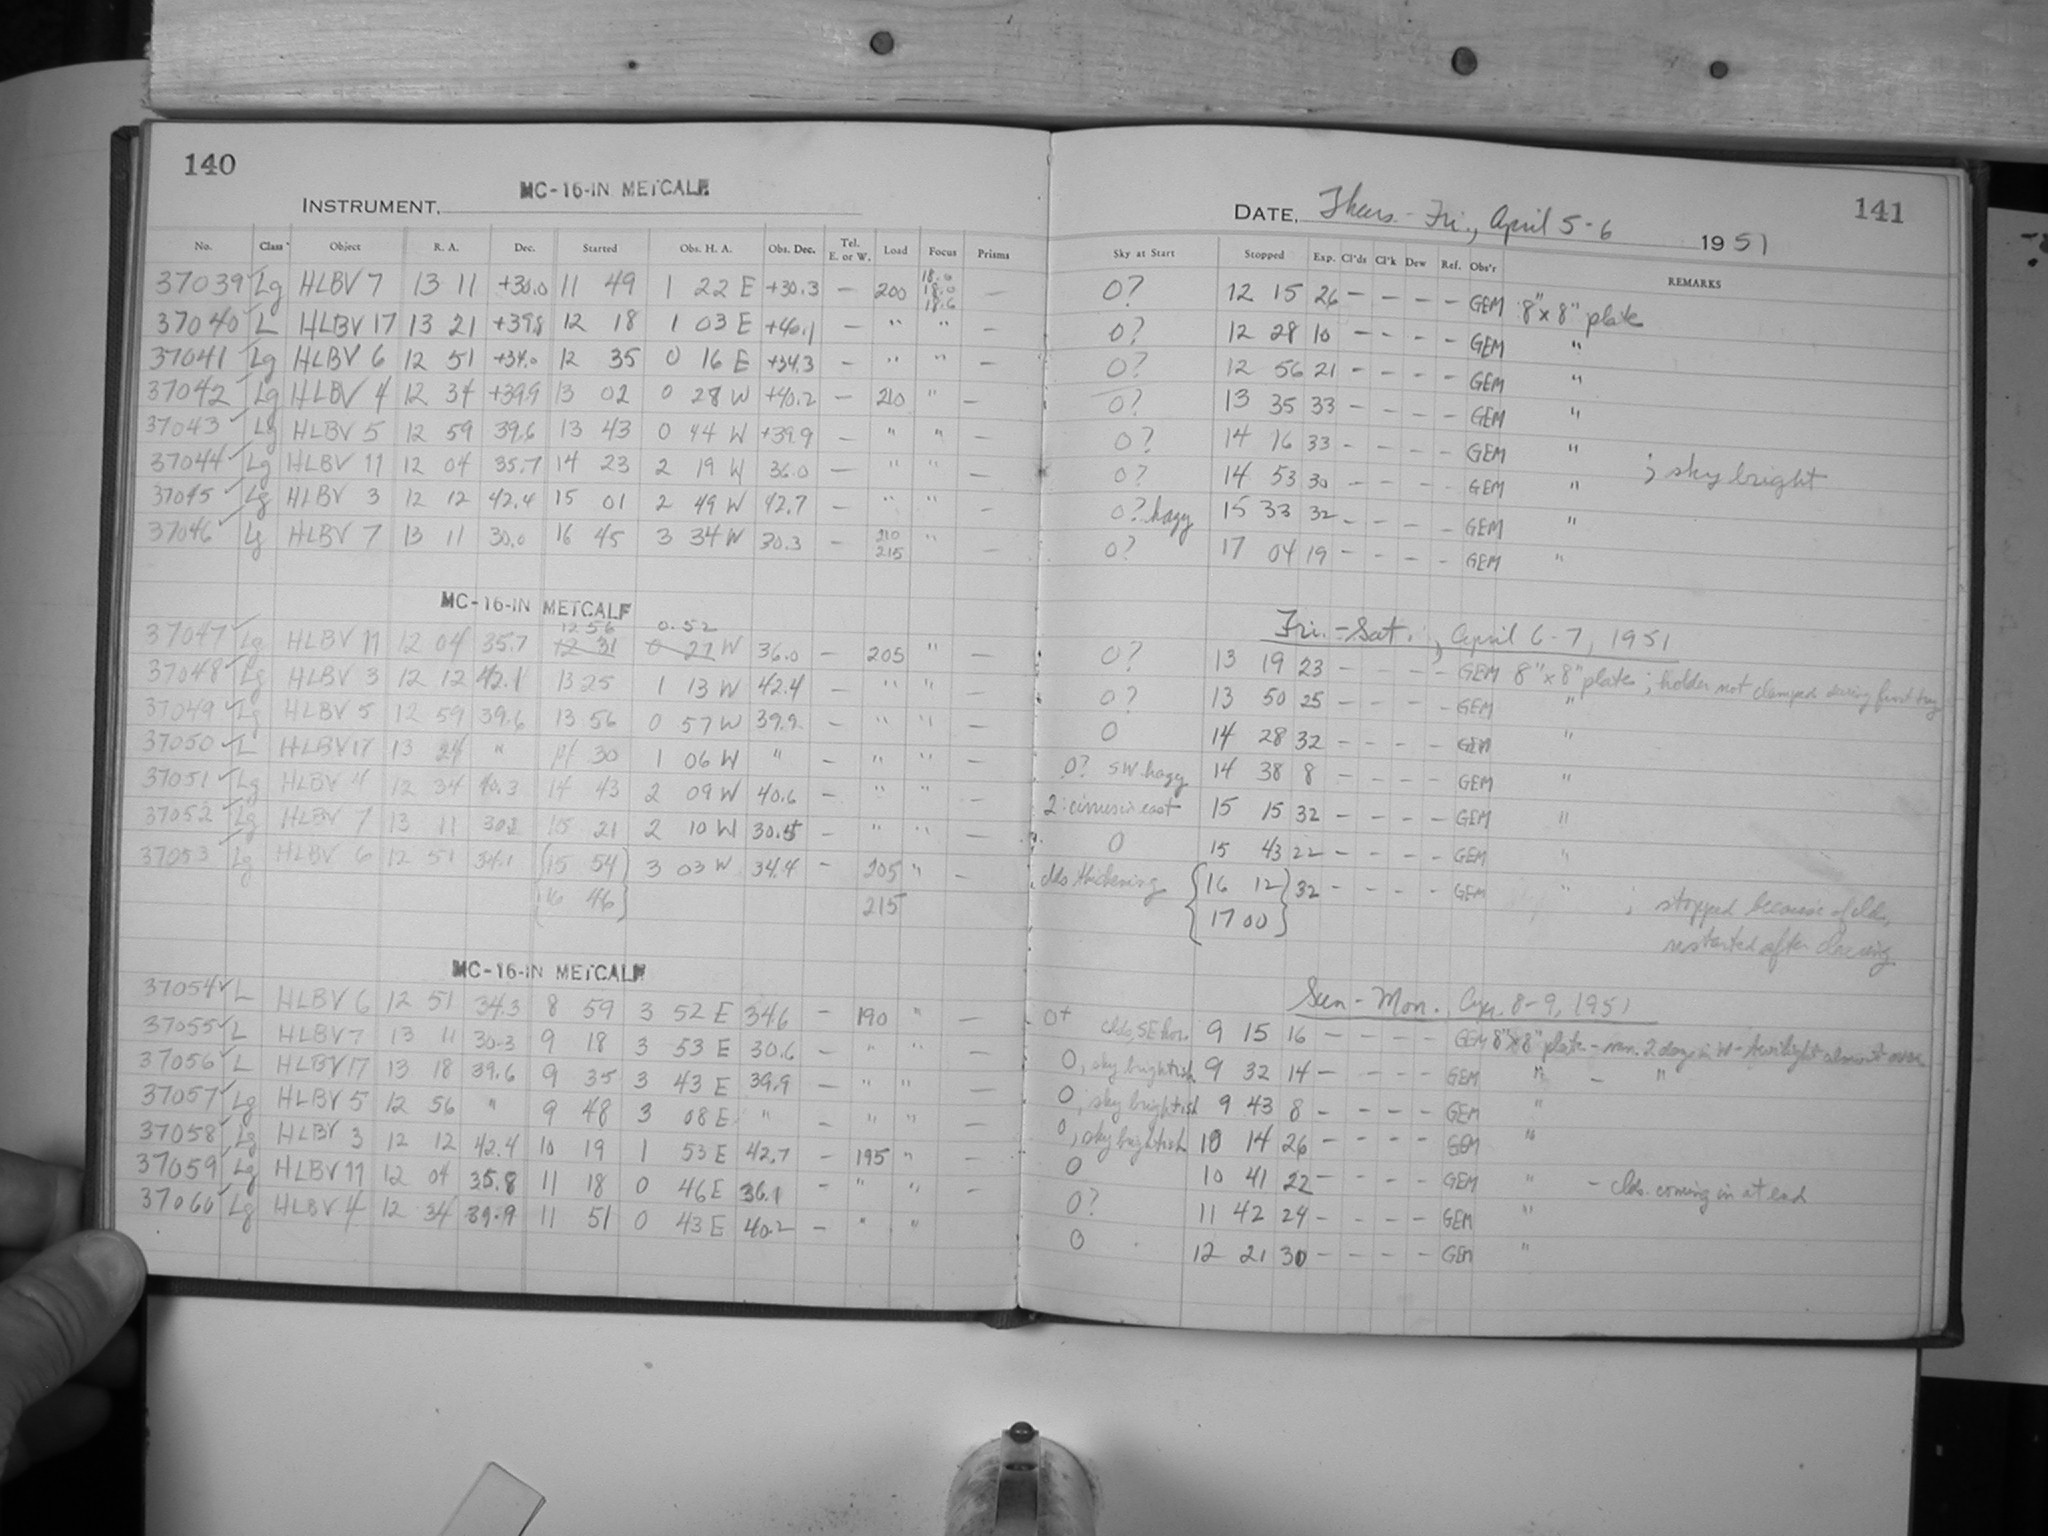 140
INSTRUMENT, MC-16-IN METCALF
No. Class Object R. A. Dec. Started Obs. H. A. Obs. Dec. Tel. E. or W. Load Focus Prisms
37039 ✓ Lg HLBV 7 13 11 +30.0 11 49 1 22 E +30.3 — 200 18.0 18.0 18.6 —
37040 ✓ L HLBV 17 13 21 +39.8 12 18 1 03 E +40.1 — " " —
37041 ✓ Lg HLBV 6 12 51 +34.0 12 35 0 16 E +34.3 — " " —
37042 ✓ Lg HLBV 4 12 34 +39.9 13 02 0 28 W +40.2 — 210 " —
37043 ✓ Lg HLBV 5 12 59 39.6 13 43 0 44 W +39.9 — " " —
37044 ✓ Lg HLBV 11 12 04 35.7 14 23 2 19 W 36.0 — " " —
37045 ✓ Lg HLBV 3 12 12 42.4 15 01 2 49 W 42.7 — " " —
37046 ✓ Lg HLBV 7 13 11 30.0 16 45 3 34 W 30.3 — 210 215 " —
MC-16-IN METCALF
12 56 0.52
37047 ✓ Lg HLBV 11 12 04 35.7 12 31 0 27 W 36.0 — 205 " —
37048 ✓ Lg HLBV 3 12 12 42.1 13 25 1 13 W 42.4 — " " —
37049 ✓ Lg HLBV 5 12 59 39.6 13 56 0 57 W 39.9 — " " —
37050 ✓ L HLBV 17 13 " 14 30 1 06 W " — " " —
37051 ✓ Lg HLBV 4 12 34 40.3 14 43 2 09 W 40.6 — " " —
37052 ✓ Lg HLBV 7 13 11 30.2 15 21 2 10 W 30.5 — " " —
37053 ✓ Lg HLBV 6 12 51 34.1 {15 54} 3 03 W 34.4 — 205 " —
{16 46} 215
MC-16-IN METCALF
37054 ✓ L HLBV 6 12 51 34.3 8 59 3 52 E 34.6 — 190 " —
37055 ✓ L HLBV 7 13 11 30.3 9 18 3 53 E 30.6 — " " —
37056 ✓ L HLBV 17 13 18 39.6 9 35 3 43 E 39.9 — " " —
37057 ✓ Lg HLBV 5 12 56 " 9 48 3 08 E " — " " —
37058 ✓ Lg HLBV 3 12 12 42.4 10 19 1 53 E 42.7 — 195 " —
37059 ✓ Lg HLBV 11 12 04 35.8 11 18 0 46 E 36.1 — " " —
37060 ✓ Lg HLBV 4 12 34 39.9 11 51 0 43 E 40.2 — " "
141
DATE, Thurs.-Fri., April 5-6 1951
Sky at Start Stopped Exp. Cl'ds Cl'k Dew Ref. Obs'r REMARKS
0? 12 15 26 — — — — GEM 8" x 8" plate
0? 12 28 10 — — — — GEM "
0? 12 56 21 — — — — GEM "
0? 13 35 33 — — — — GEM "
0? 14 16 33 — — — — GEM " ; sky bright
0? 14 53 30 — — — — GEM "
0? hazy 15 33 32 — — — — GEM "
0? 17 04 19 — — — — GEM "
Fri.-Sat., April 6-7, 1951
0? 13 19 23 — — — — GEM 8" x 8" plate ; holder not clamped during first
0? 13 50 25 — — — — GEM "
0 14 28 32 — — — — GEM "
0? SW hazy 14 38 8 — — — — GEM "
2: cirrus in east 15 15 32 — — — — GEM "
0 15 43 22 — — — — GEM "
clds thickening {16 12} 32 — — — — GEM " ; stopped because of clds,
{17 00} restarted after clearing
Sun-Mon. Apr. 8-9, 1951
0+ clds, SE hor. 9 15 16 — — — — GEM 8" x 8" plate - 2 days in W - twilight almost over
0, sky brightish 9 32 14 — — — — GEM " - "
0, sky brightish 9 43 8 — — — — GEM "
0, sky brightish 10 14 26 — — — — GEM "
0 10 41 22 — — — — GEM " - clds. coming in at end
0? 11 42 24 — — — — GEM "
0 12 21 30 — — — — GEM "